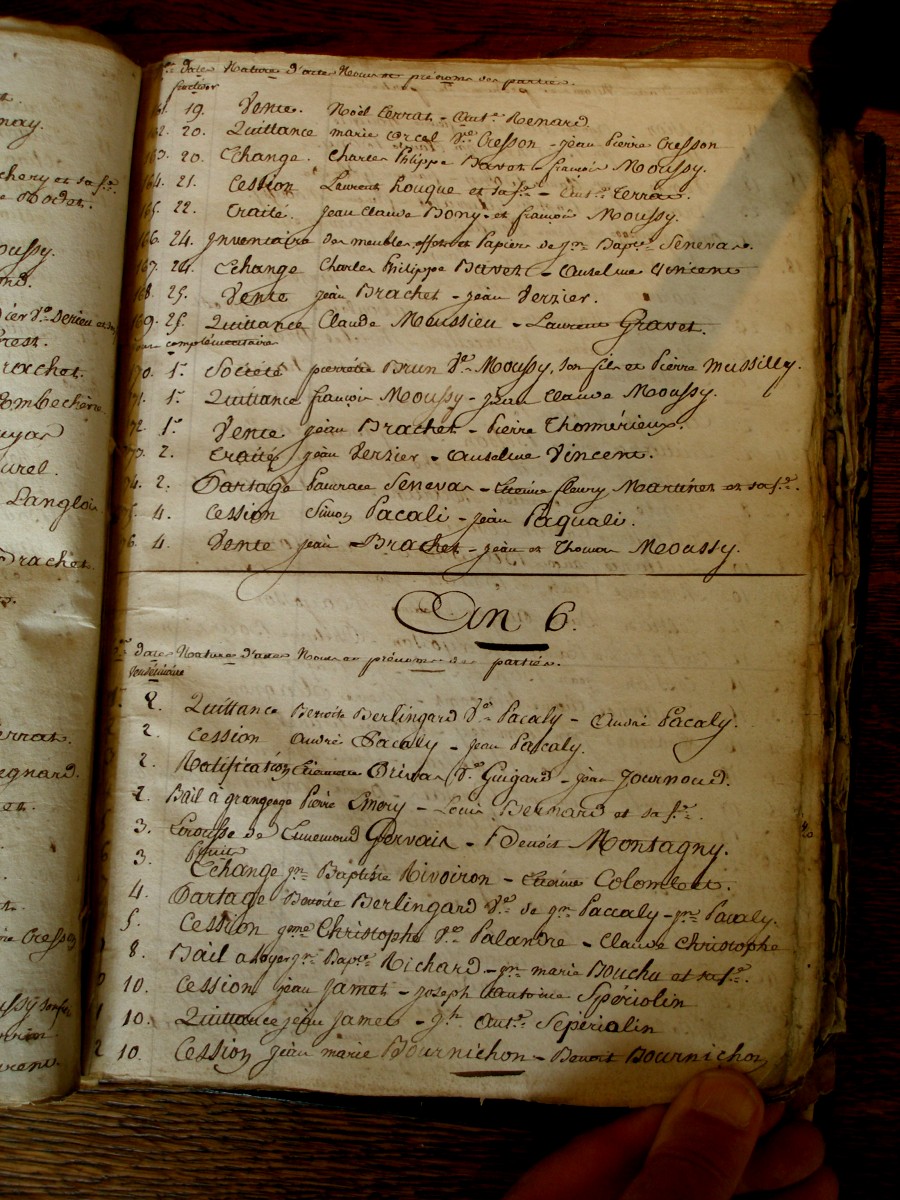 nay.
chery et sa fe.
oussy.
rachet.
Combechère
urel.
Langlois
Brachet.
errat.
egnard.
ne Cresson
dates Nature d'actes Noms et prénoms des parties.
fructidor
61. 19. Vente. Noël Cerrat - Ant.e Renard
62. 20. Quittance marie Corcel Ve Cresson - jean Pierre Cresson
163. 20. Echange. Charles Philippe Bavoz - françois Moussy.
164. 21. Cession Laurent fouque et sa fe. - Ant.e Terras.
165. 22. Traité. jean Claude Bony - et françois Moussy.
166. 24. Inventaire des meubles, effets et Papiers de jn Bapte. Senevas.
167. 24. Echange Charles Philippe Bavoz - Anselme Vincent
168. 25. Vente jean Brachet - jean Verzier.
169. 25. Quittance Claude Moussieu - Laurent Gravet.
jours complémentaires
170. 1r. Société pierrette Brun Ve Moussy, son fils et Pierre Mussilly.
171. 1r. Quittance françois Moussy - jean Claude Moussy.
172. 1r. Vente jean Brachet - Pierre Thomérieux.
173. 2. Traité jean Verzier - Anselme Vincent.
174. 2. Partage Pancrace Senevas - Etienne fleury Martinet et sa fe.
175. 4. Cession Simon Pacali - jean Paquali.
176. 4. Vente jean Brachet - jean et Thomas Moussy.
An 6.
dates Nature d'actes Noms et prénoms des parties.
Vendémiaire
1. 2. Quittance Benoite Berlingard Ve Pacaly - André Pacaly.
2. Cession André Pacaly - jean Pascaly.
2. Ratification Etiennette Orivas Ve Guigard - jean Journoud.
2. Bail à grangeage Pierre Emery - Louis Bernard et sa fe.
3. Prousse de Ennemond Gervais - Benoit Montagny.
fruits
3. Echange jn Baptiste Rivoiron - Etienne Colombet.
4. Partage Benoite Berlingard Ve de jn Paccaly - jn Pacaly.
5. Cession Christophe Ve Palandre - Claude Christophe
8. Bail a loyer jn Bapte. Richard - jn marie Bouchu et sa fe.
10. Cession jean Jamet - joseph Antoine Spériolin
10. Quittance jean Jamet - jh Ant.e Sepériolin
2 10. Cession jean marie Bournichon - Benoit Bournichon